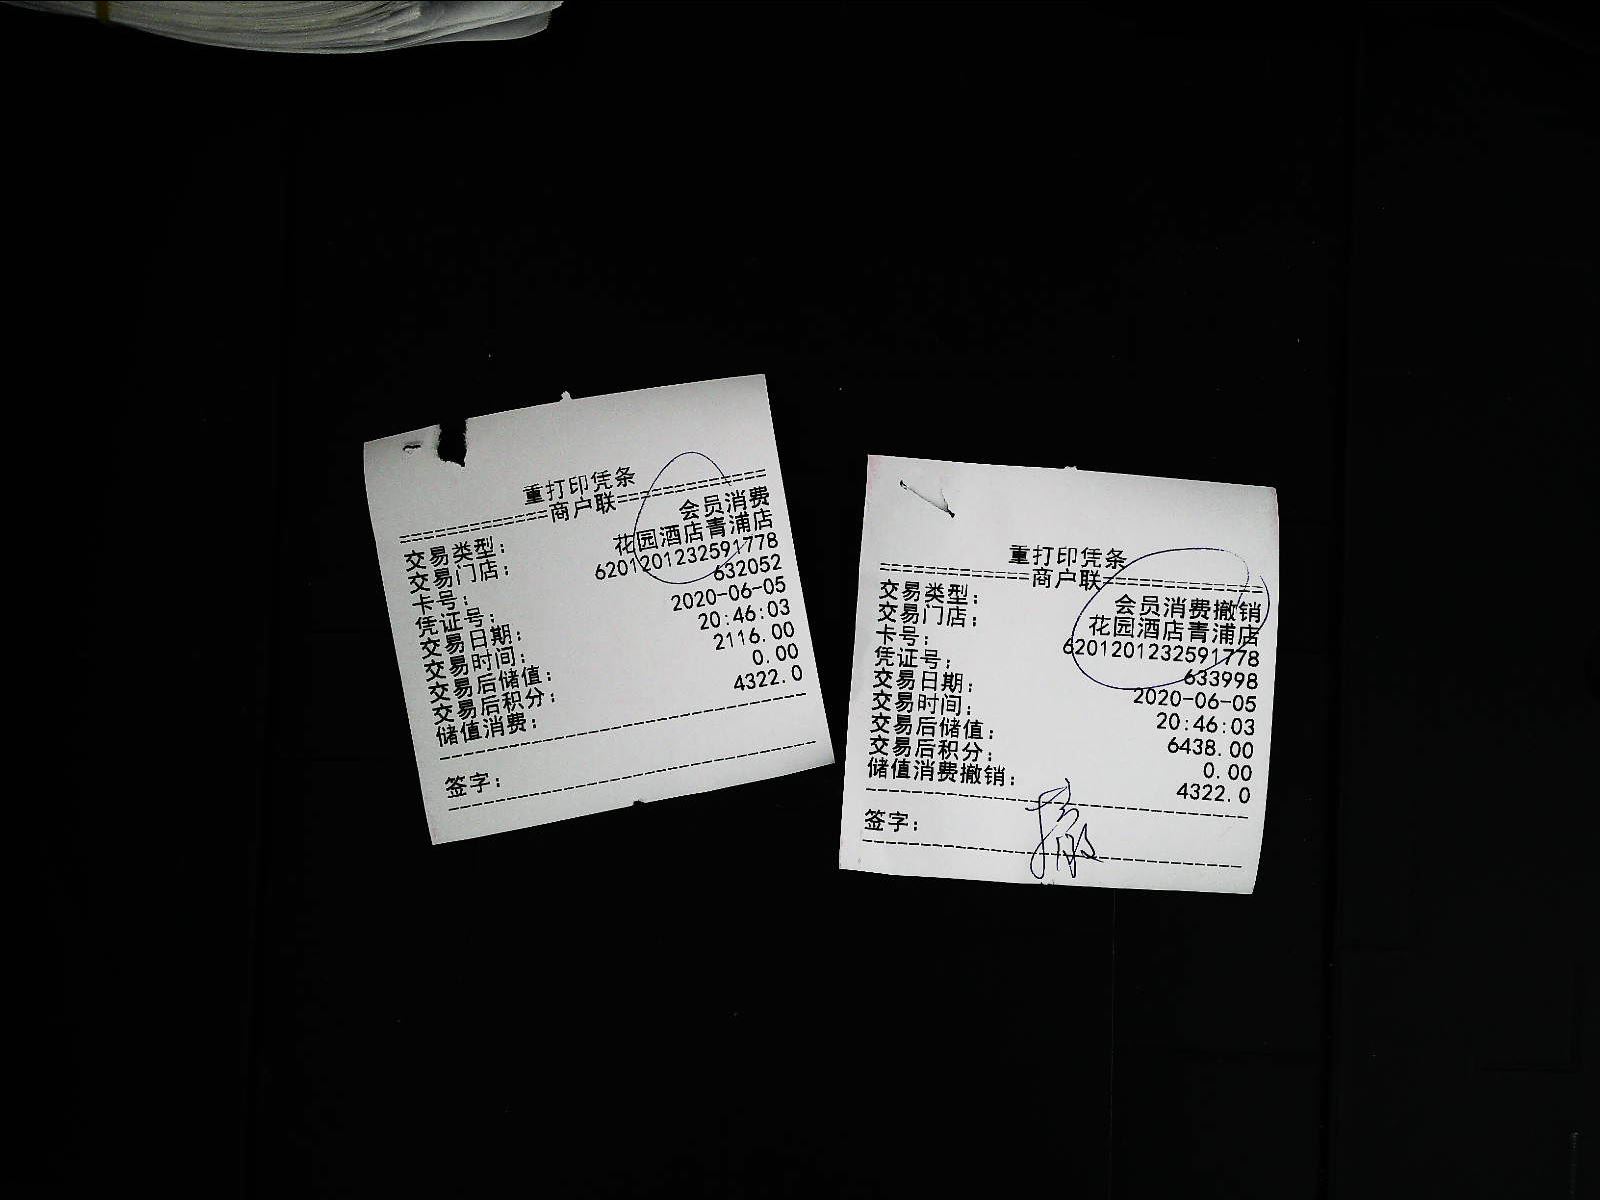 重打印凭条
==========商户联==========
交易类型: 会员消费
交易门店: 花园酒店青浦店
卡号: 6201201232591778
凭证号: 632052
交易日期: 2020-06-05
交易时间: 20:46:03
交易后储值: 2116.00
交易后积分: 0.00
储值消费: 4322.0
签字:
重打印凭条
==========商户联==========
交易类型: 会员消费撤销
交易门店: 花园酒店青浦店
卡号: 6201201232591778
凭证号: 633998
交易日期: 2020-06-05
交易时间: 20:46:03
交易后储值: 6438.00
交易后积分: 0.00
储值消费撤销: 4322.0
签字: 撤